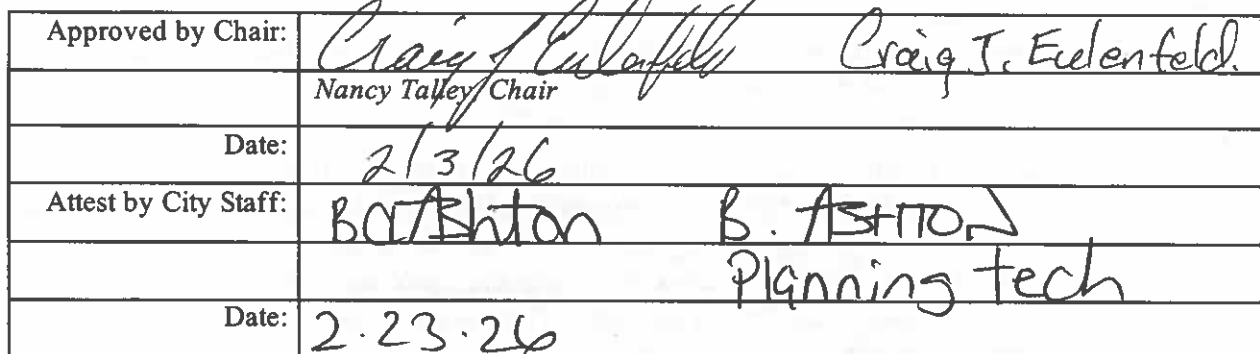 Approved by Chair: Craig J Eulenfeld Craig J. Eulenfeld.
Nancy Talley, Chair
Date: 2/3/26
Attest by City Staff: B Ashton B. ASHTON
Planning tech
Date: 2.23.26